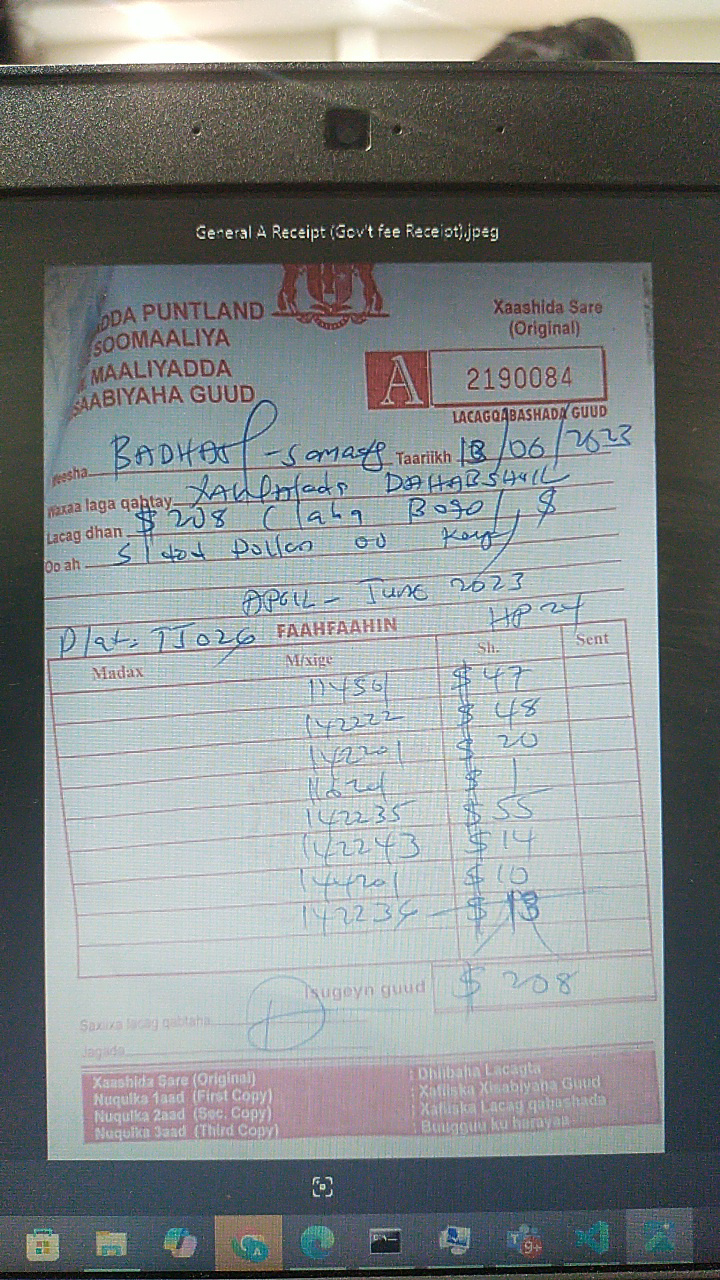 General A Receipt (Gov't fee Receipt).jpeg
DDA PUNTLAND
SOOMAALIYA
MAALIYADDA
SAABIYAHA GUUD
Xaashida Sare
(Original)
A 2190084
LACAGQABASHADA GUUD
BADHAN - Sanaag Taariikh 13/06/2023
Waxaa laga qabtay DAHABSHIIL
Lacag dhan $ 208 ( laba Boqol
Oo ah
APRIL - JUNE 2023
Plat: TJ026 FAAHFAAHIN HP 24
Madax M/xige Sh. Sent
$ 47
142222 $ 48
142201 $ 20
$ 1
142235 $ 55
142243 $ 14
144201 $ 10
142234 $ 13
Isugeyn guud $ 208
Saxiixa lacag qabtaha
Jagada
Xaashida Sare (Original) : Dhiibaha Lacagta
Nuqulka 1aad (First Copy) : Xafiiska Xisabiyaha Guud
Nuqulka 2aad (Sec. Copy) : Xafiiska Lacag qabashada
Nuqulka 3aad (Third Copy) : Buugguu ku harayaa
9+